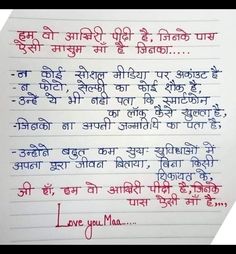 हम वो आखिरी पीढ़ी है, जिनके पास
ऐसी मासूम माँ है जिनका.....
-ना कोई सोशल मीडिया पर अकांउट है
-न फोटो, सेल्फी का कोई शौक है,
-उन्हें ये भी नही पता कि स्मार्टफोन
का लॉक कैसे खुलता है,
-जिनको ना अपनी जन्मतिथि का पता है,
-उन्होंने बहुत कम सुख-सुविधाओं में
अपना पूरा जीवन बिताया, बिना किसी
शिकायत के,
जी हाँ, हम वो आखिरी पीढ़ी है,जिनके
पास ऐसी माँ है,,,,
Love you Maa.....